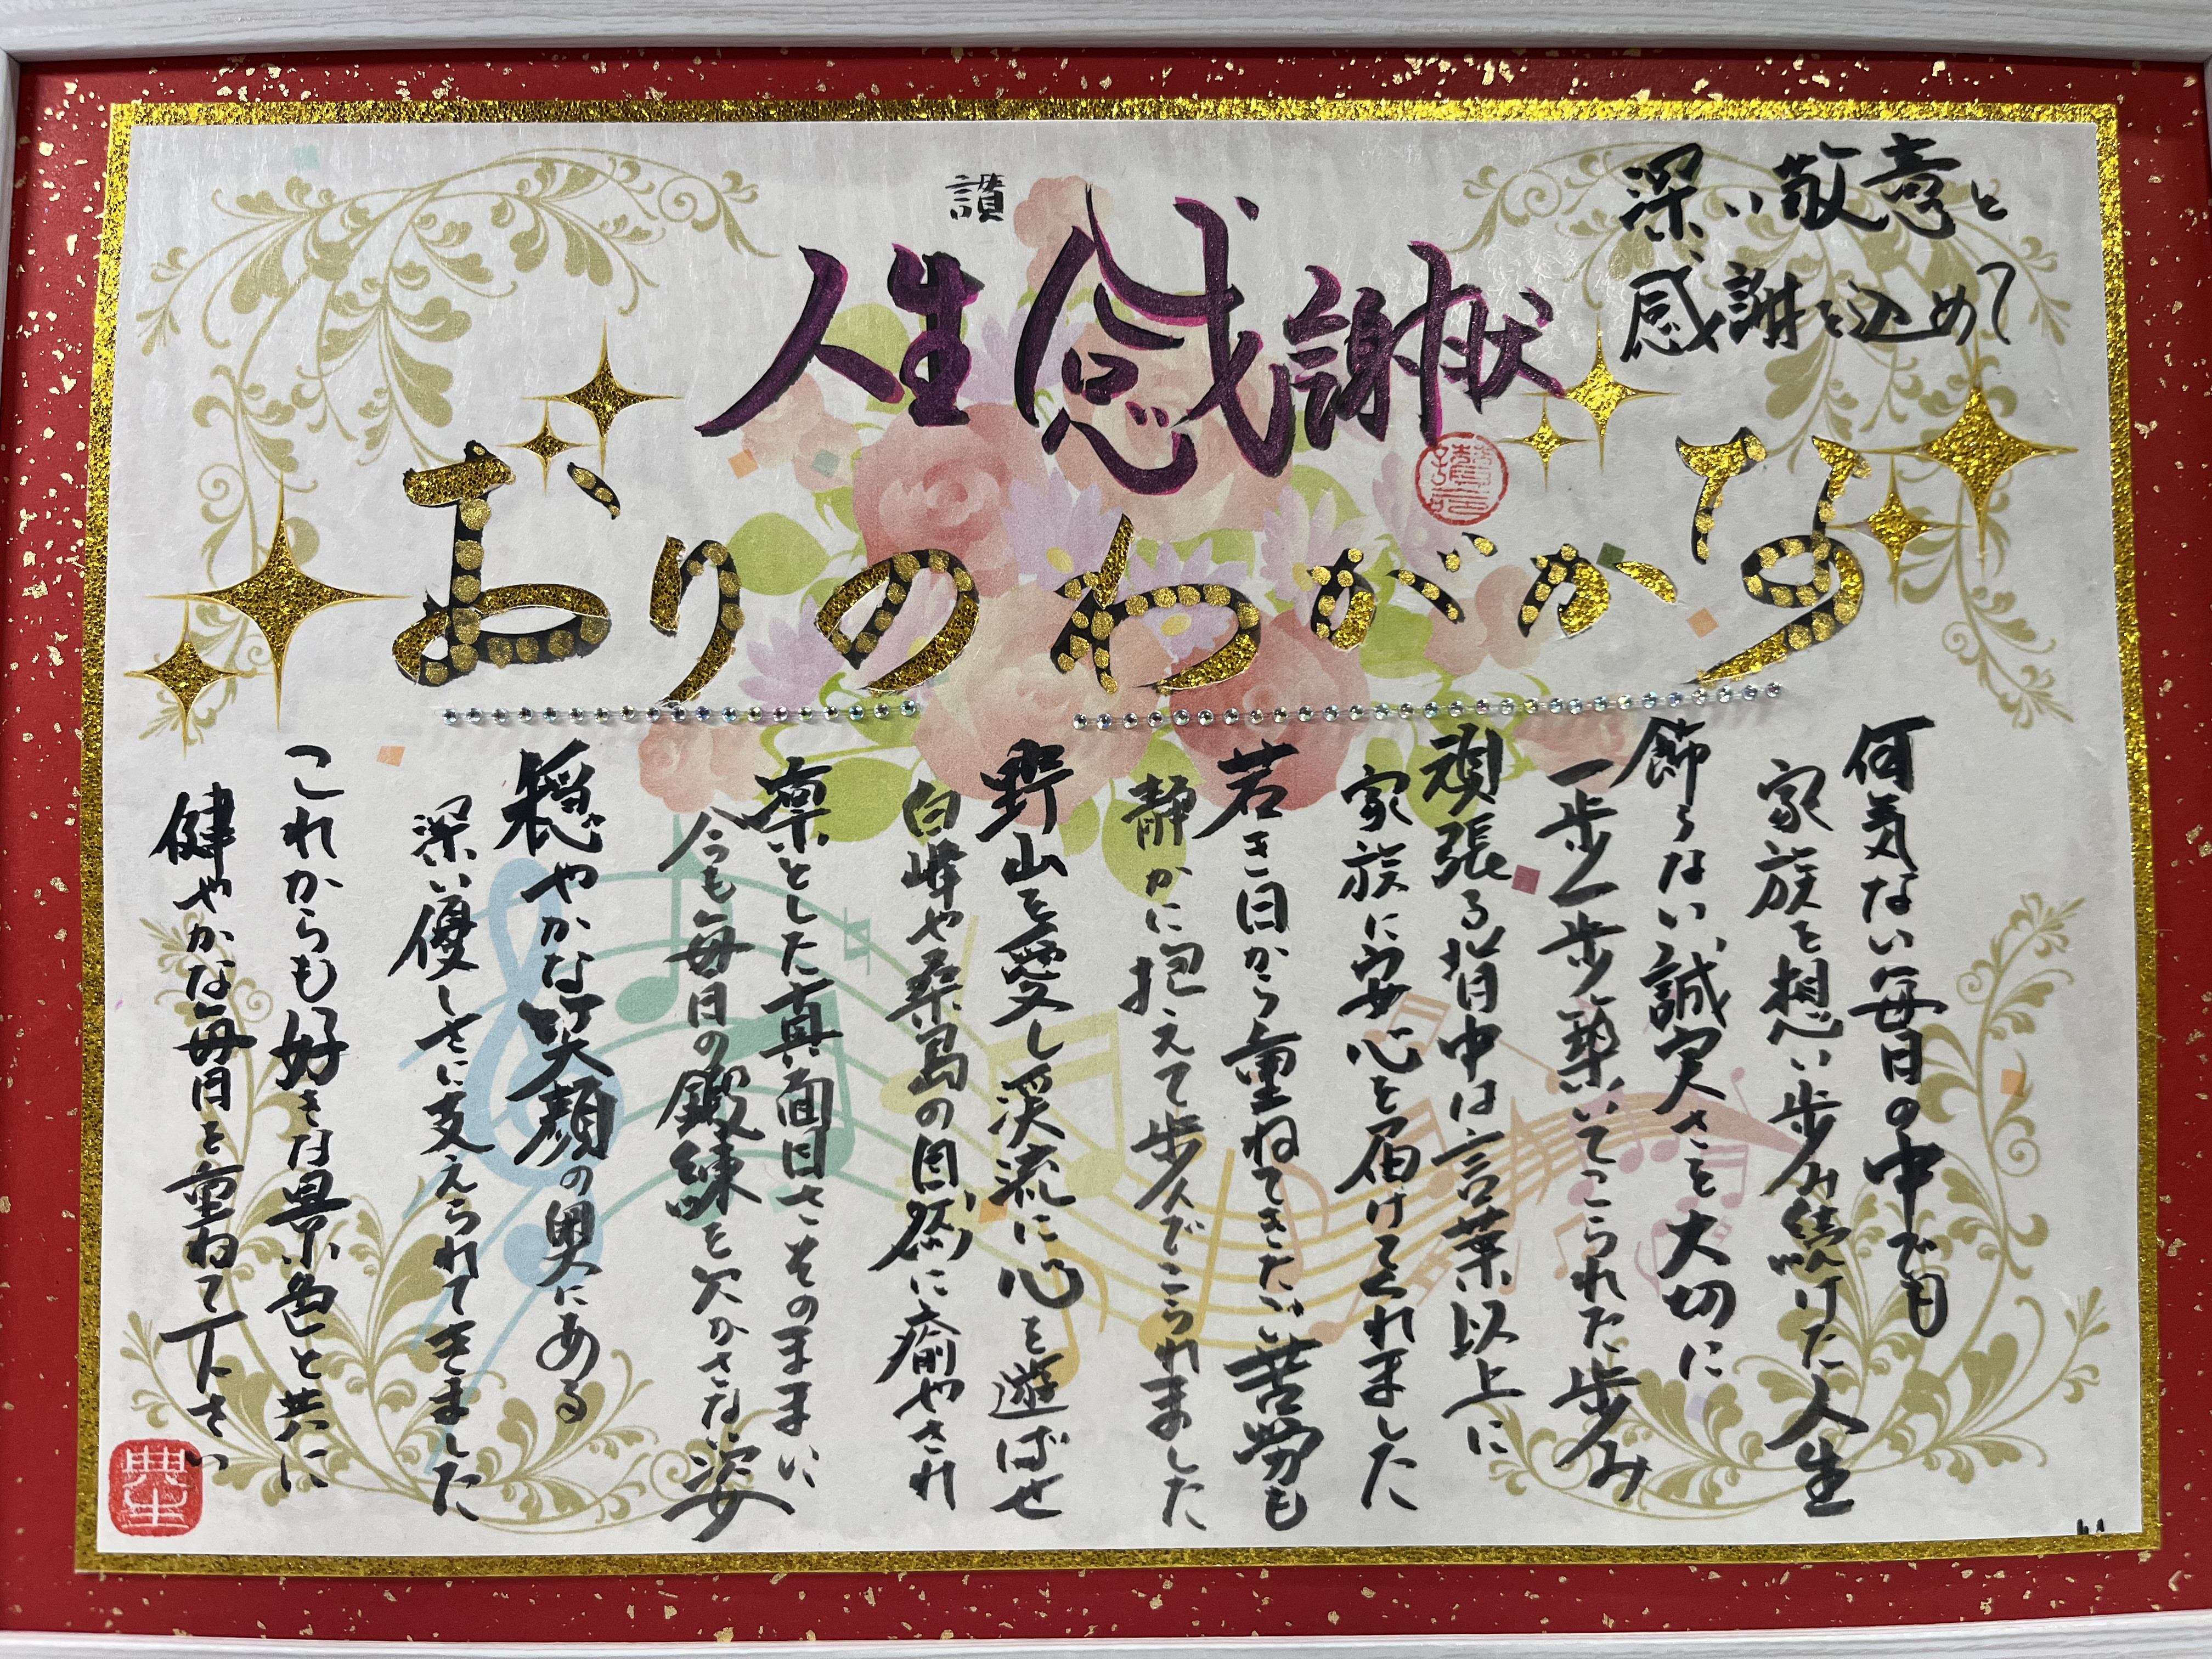 深い敬意と
感謝を込めて
讃
人生感謝状
おりのわがかな
何気ない毎日の中でも
家族を想い歩み続けた人生
飾らない誠実さを大切に
一歩一歩築いてこられた歩み
頑張る背中は言葉以上に
家族に安心を届けてくれました
若き日から重ねてきたい苦労も
静かに抱えて歩んでこられました
野山を愛し渓流に心を遊ばせ
白峰や桑島の自然に癒やされ
凛とした真面目さそのままい
今も毎日の鍛練を欠かさない姿
穏やかな笑顔の奥にある
深い優しさに支えられてきました
これからも好きな景色と共に
健やかな毎日を重ねて下さい
典生